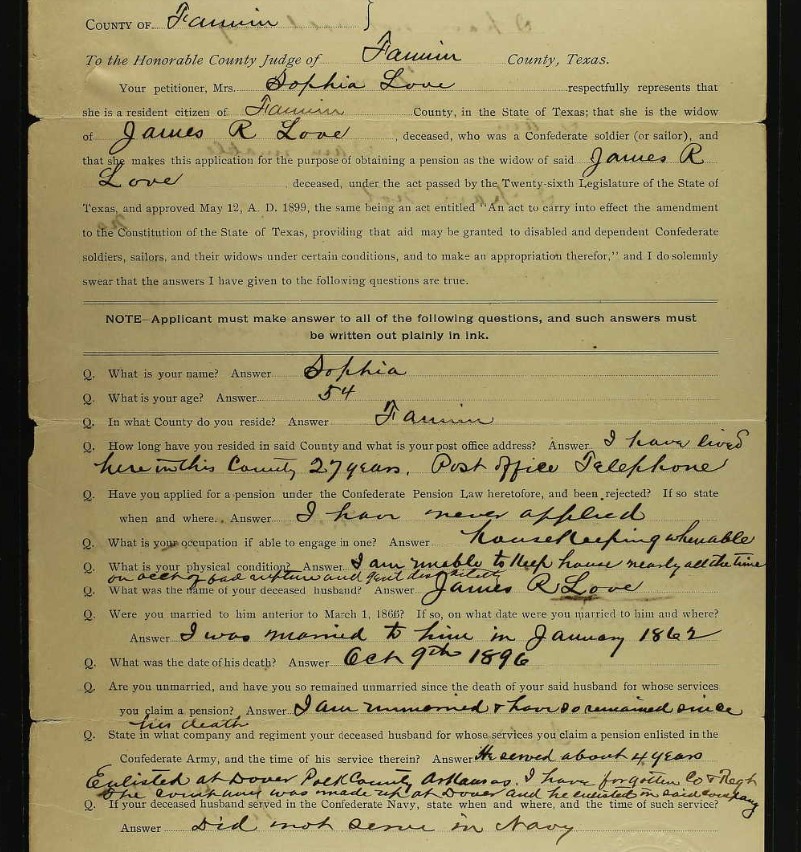 COUNTY OF Fannin }
To the Honorable County Judge of Fannin County, Texas.
Your petitioner, Mrs. Sophia Love respectfully represents that
she is a resident citizen of Fannin County, in the State of Texas; that she is the widow
of James R Love, deceased, who was a Confederate soldier (or sailor), and
that she makes this application for the purpose of obtaining a pension as the widow of said James R
Love, deceased, under the act passed by the Twenty-sixth Legislature of the State of
Texas, and approved May 12, A. D. 1899, the same being an act entitled "An act to carry into effect the amendment
to the Constitution of the State of Texas, providing that aid may be granted to disabled and dependent Confederate
soldiers, sailors, and their widows under certain conditions, and to make an appropriation therefor," and I do solemnly
swear that the answers I have given to the following questions are true.
NOTE—Applicant must make answer to all of the following questions, and such answers must
be written out plainly in ink.
Q. What is your name? Answer Sophia
Q. What is your age? Answer 54
Q. In what County do you reside? Answer Fannin
Q. How long have you resided in said County and what is your post office address? Answer I have lived
here in this County 27 years. Post office Telephone
Q. Have you applied for a pension under the Confederate Pension Law heretofore, and been rejected? If so state
when and where. Answer I have never applied
Q. What is your occupation if able to engage in one? Answer housekeeping when able
Q. What is your physical condition? Answer I am unable to keep house nearly all the time
on acct of bad rupture and genl disability
Q. What was the name of your deceased husband? Answer James R Love
Q. Were you married to him anterior to March 1, 1866? If so, on what date were you married to him and where?
Answer I was married to him in January 1862
Q. What was the date of his death? Answer Oct 9th 1896
Q. Are you unmarried, and have you so remained unmarried since the death of your said husband for whose services
you claim a pension? Answer I am unmarried & have so remained since
his death
Q. State in what company and regiment your deceased husband for whose services you claim a pension enlisted in the
Confederate Army, and the time of his service therein? Answer He served about 4 years
Enlisted at Dover Polk County Arkansas. I have forgotten Co & Regt
The company was made up at Dover and he enlisted in said company
Q. If your deceased husband served in the Confederate Navy, state when and where, and the time of such service?
Answer Did not serve in Navy